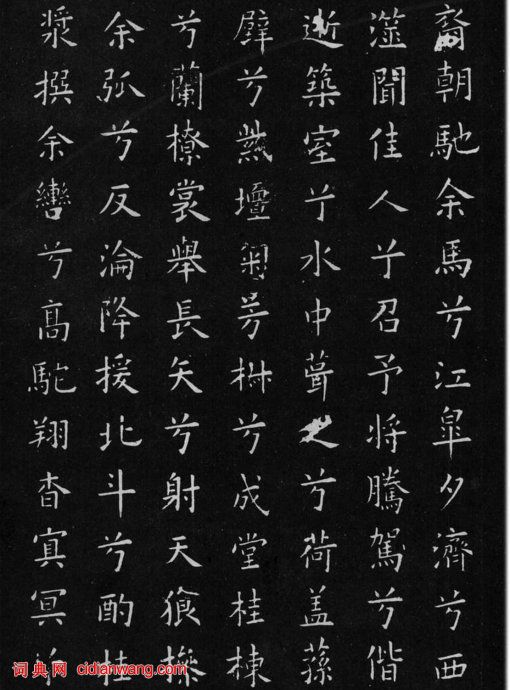 裔朝馳余馬兮江皐夕濟兮西
澨聞佳人兮召予將騰駕兮偕
逝築室兮水中葺之兮荷盖蓀
壁兮壇芳椒兮成堂桂棟
兮蘭橑裳舉長矢兮射天狼操
余弧兮反淪降援北斗兮酌桂
漿撰余轡兮高駝翔杳冥冥兮
词典网 cidianwang.com